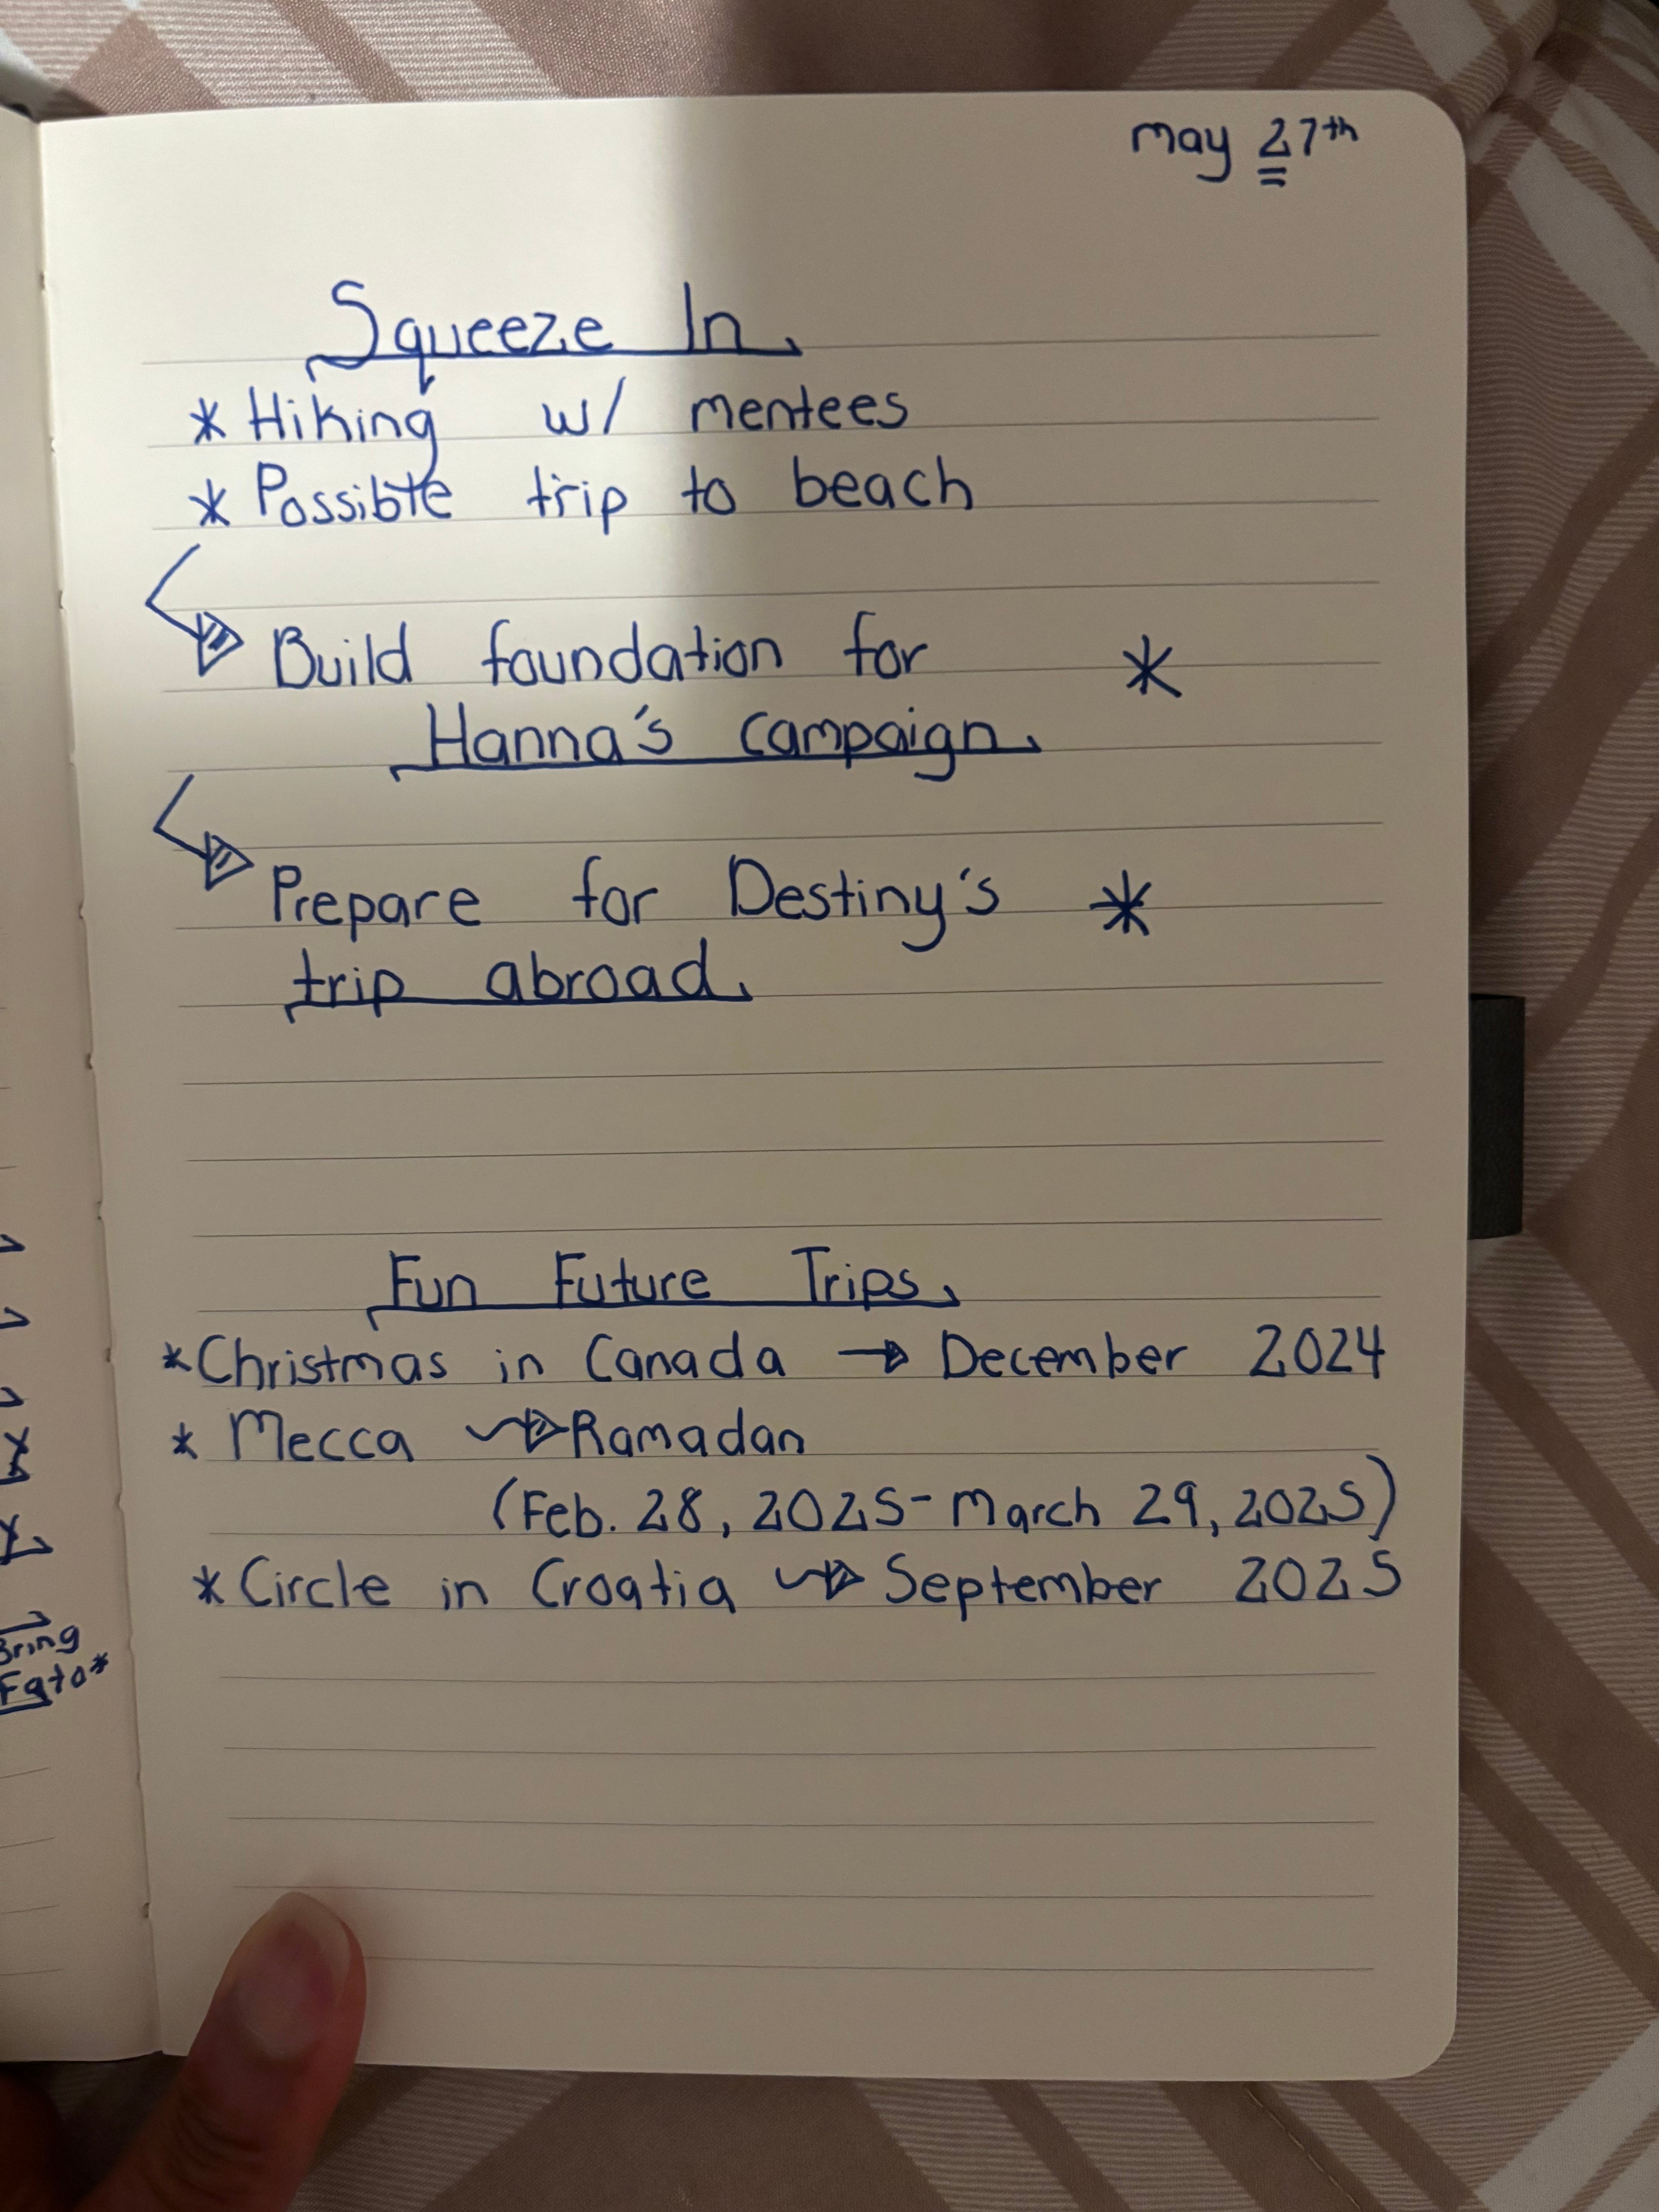 May 27th
Squeeze In
* Hiking w/ mentees
* Possible trip to beach
Build foundation for *
Hanna's campaign
Prepare for Destiny's *
trip abroad
Fun Future Trips
* Christmas in Canada → December 2024
* Mecca → Ramadan
(Feb. 28, 2025 - March 29, 2025)
* Circle in Croatia → September 2025
Bring